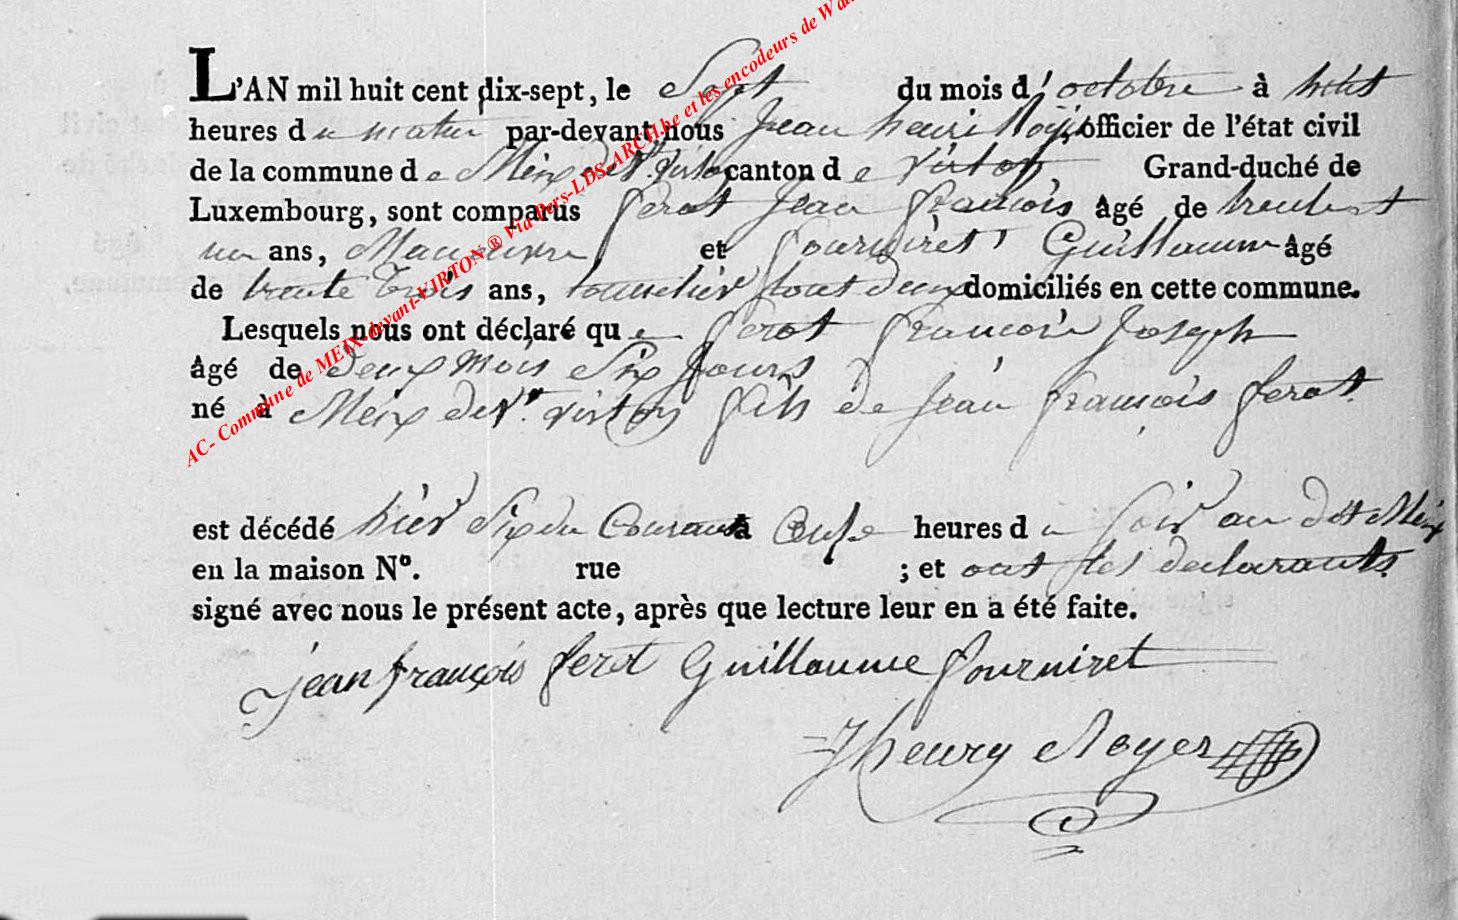 L'AN mil huit cent dix-sept, le Sept du mois d'octobre à huit
heures du matin par-devant nous Jean henri officier de l'état civil
de la commune de Meix devt. virton canton de virton Grand-duché de
Luxembourg, sont comparus ferot Jean françois âgé de
un ans, Manœuvre et fourniret Guillaume âgé
de trente trois ans, tout deux domiciliés en cette commune.
Lesquels nous ont déclaré que ferot françois Joseph
âgé de deux mois Six jours
né à Meix devt. virton fils de jean françois ferot.
est décédé hier Six du Courant à Onze heures du Soir au dit Meix
en la maison N°. rue ; et ont les declarants
signé avec nous le présent acte, après que lecture leur en a été faite.
jean françois ferot Guillaume fourniret
Jhenry Noyer
AC- Commune de MEIX-devant-VIRTON ® Via Pers-LDS-ARCH.be et les encodeurs de